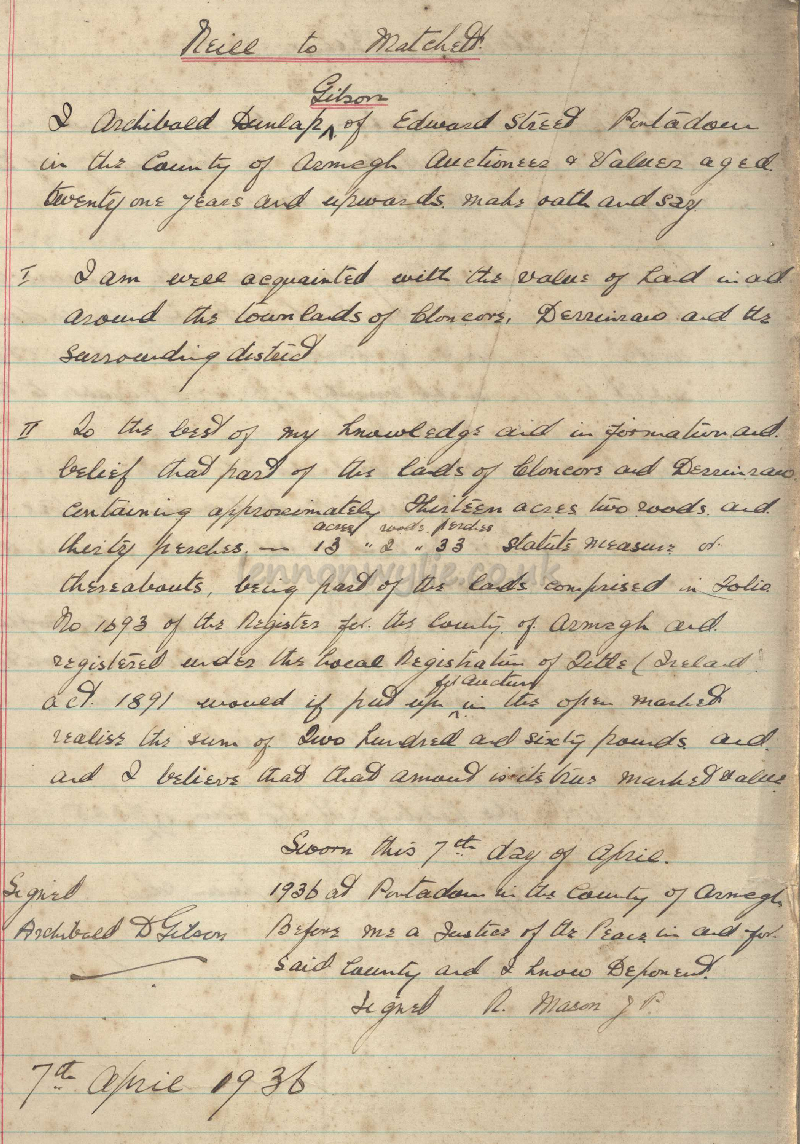 Neill to Matchett.
Gibson
I Archibald Dunlap ^ of Edward Street Portadown
in the County of Armagh Auctioneer & Valuer aged
twenty one years and upwards make oath and say
I I am well acquainted with the value of Land in and
around the townlands of Cloncore, Derrinraw and the
surrounding district
II To the best of my knowledge and information and
belief that part of the lands of Cloncore and Derrinraw
containing approximately Thirteen acres two roods and
acres roods perches
thirty perches — 13 " 2 " 33 statute measure or
lennonwylie.co.uk
thereabouts, being part of the lands comprised in Folio
No 1693 of the Register for the County of Armagh and
registered under the Local Registration of Title (Ireland
for auction
act 1891 would if put up ^ in the open market
realise the sum of Two hundred and sixty pounds and
and I believe that that amount is its true market value
Sworn this 7th day of April.
Signed 1936 at Portadown in the County of Armagh
Archibald D Gibson Before me a Justice of the Peace in and for
said County and I know Deponent.
Signed R. Mason J P.
7th April 1936